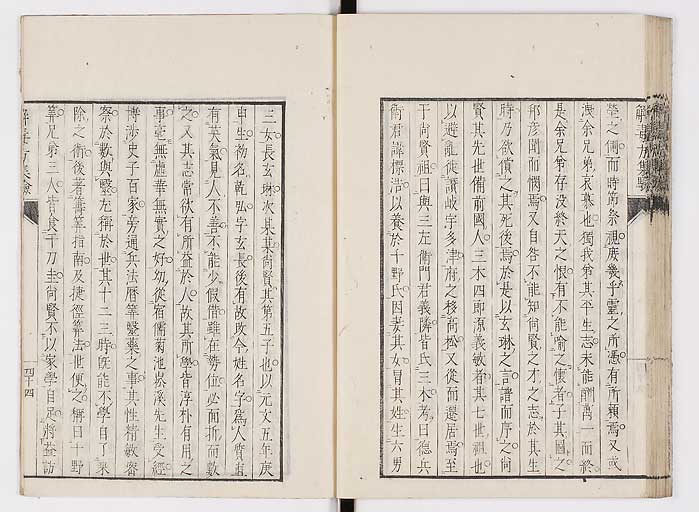 塋之側而時節祭祀庶幾乎靈之所憑有所賴焉又或
洩余兄弟哀慕也獨我弟其平生志未能酬萬一而終
是余兄弟存没終天之恨有不能喻之懷者子其圖之
邦彦聞而憫焉又自咎不能知尚賢之才之志於其生
時乃欲償之其死後焉於是以玄琳之言譜而序之尚
賢其先世備前國人三木四郎源義敏者其七世祖也
以避亂徙讃岐字多津府之移高松又從而遷居焉至
于尚賢祖曰與三左衛門君義隣皆氏三木考曰德兵
衛君諱標浩以養於十野氏因妻其女冒其姓生六男
三女長玄琳次某某尚賢其第五子也以元文五年庚
申生初名乾弘字玄長後有故改今姓名字爲人質直
有英氣見人不善不能少假借雖在勢位必面折而數
之又其志常欲有所益於人故其所學皆淳朴有用之
事絶無虚華無實之好幼從宿儒菊池崧溪先生受經
博渉史子百家旁通兵法暦筭醫藥之事其性精敏審
察於數與醫左稱於世其十二三時既能不學自了乘
除之術後著籌筭指南及捷徑筭法世便之稱曰十野
筭兄弟三人皆食于刀圭尚賢不以家學自足將益訪
解毒方集驗
四十四